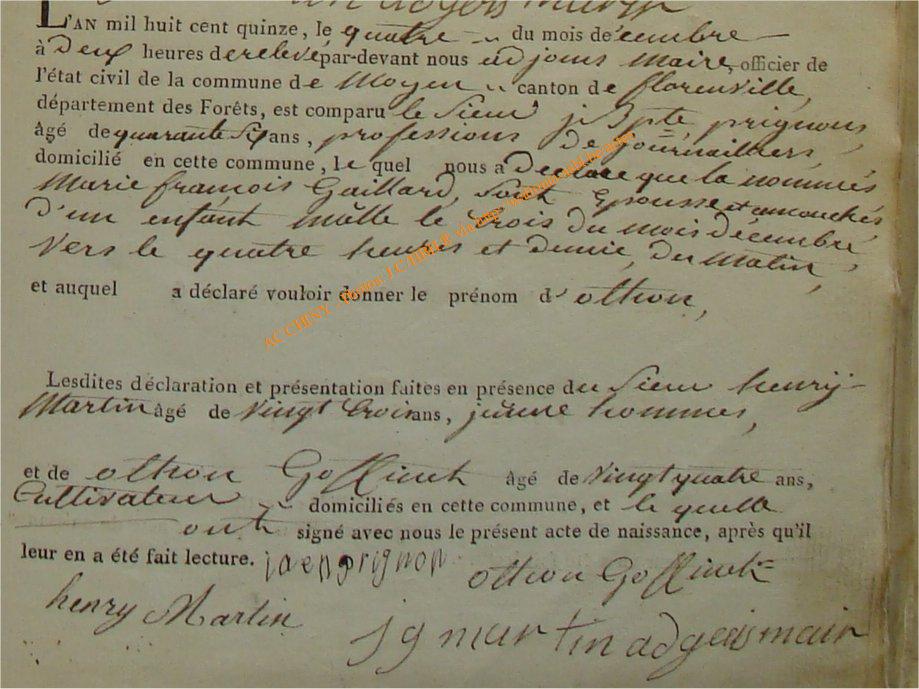 L'AN mil huit cent quinze, le quatre du mois decembre
à Deux heures de relevé par-devant nous adjoins maire, officier de
l'état civil de la commune de Moyen canton de florenville,
département des Forêts, est comparu le Sieur j Bpte prignons,
âgé de quarante Six ans, professions de journailliers,
domicilié en cette commune, Le quel nous a Declare que la nommés
Marie françois Gaillard, Epousse et amouchés
D'un enfant mâlle le trois du mois decembre,
Vers le quatre heures et demie, du matin,
et auquel a déclaré vouloir donner le prénom d' othon,
Lesdites déclaration et présentation faites en présence du Sieur henrij
Martin âgé de vingt trois ans, jeune hommes,
et de othon Goffinet âgé de vingt quatre ans,
Cultivateur domiciliés en cette commune, et le quelle
ont signé avec nous le présent acte de naissance, après qu'il
leur en a été fait lecture. prignon othon Goffinet
henry Martin
jg martin adgois mair